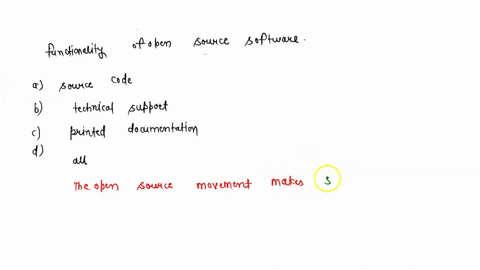 functionality of open source software.
a) source code
b) technical support
c) printed documentation
d)
all
The open source movement makes s